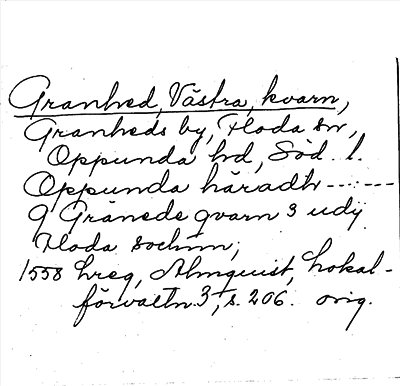 Granhed, Västra, kvarn,
Granheds by, Floda sn,
Oppunda hd, Söd. l.
Oppunda häradh ------
9 Grånede qvarn 3 udj
Floda sochnn;
1558 hreg, Almquist, Lokal-
förvaltn 3, s. 206. orig.